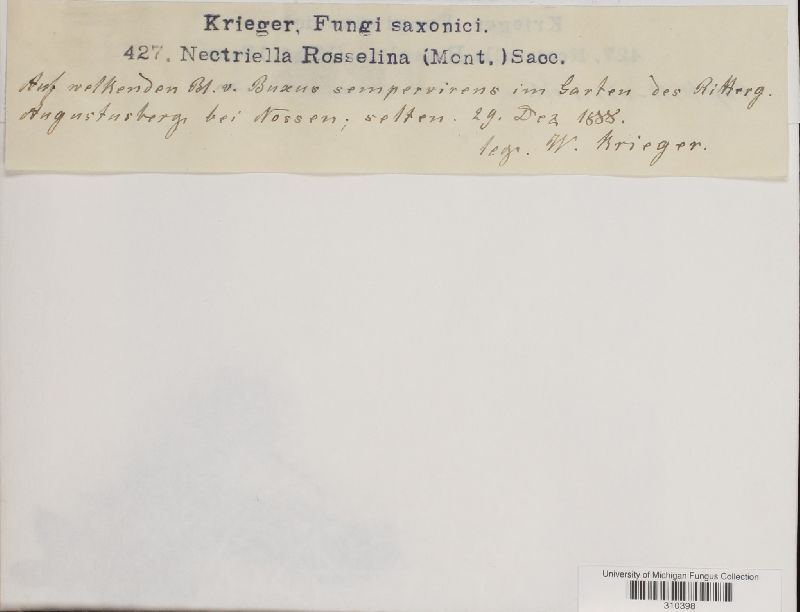 Krieger, Fungi saxonici.
427. Nectriella Rosselina (Mont.) Sacc.
Auf welkenden Bl. v. Buxus sempervirens im Garten des Ritterg.
Augustusberg bei Nossen; selten. 29. Dez 1888.
leg. W. Krieger.
University of Michigan Fungus Collection
310398